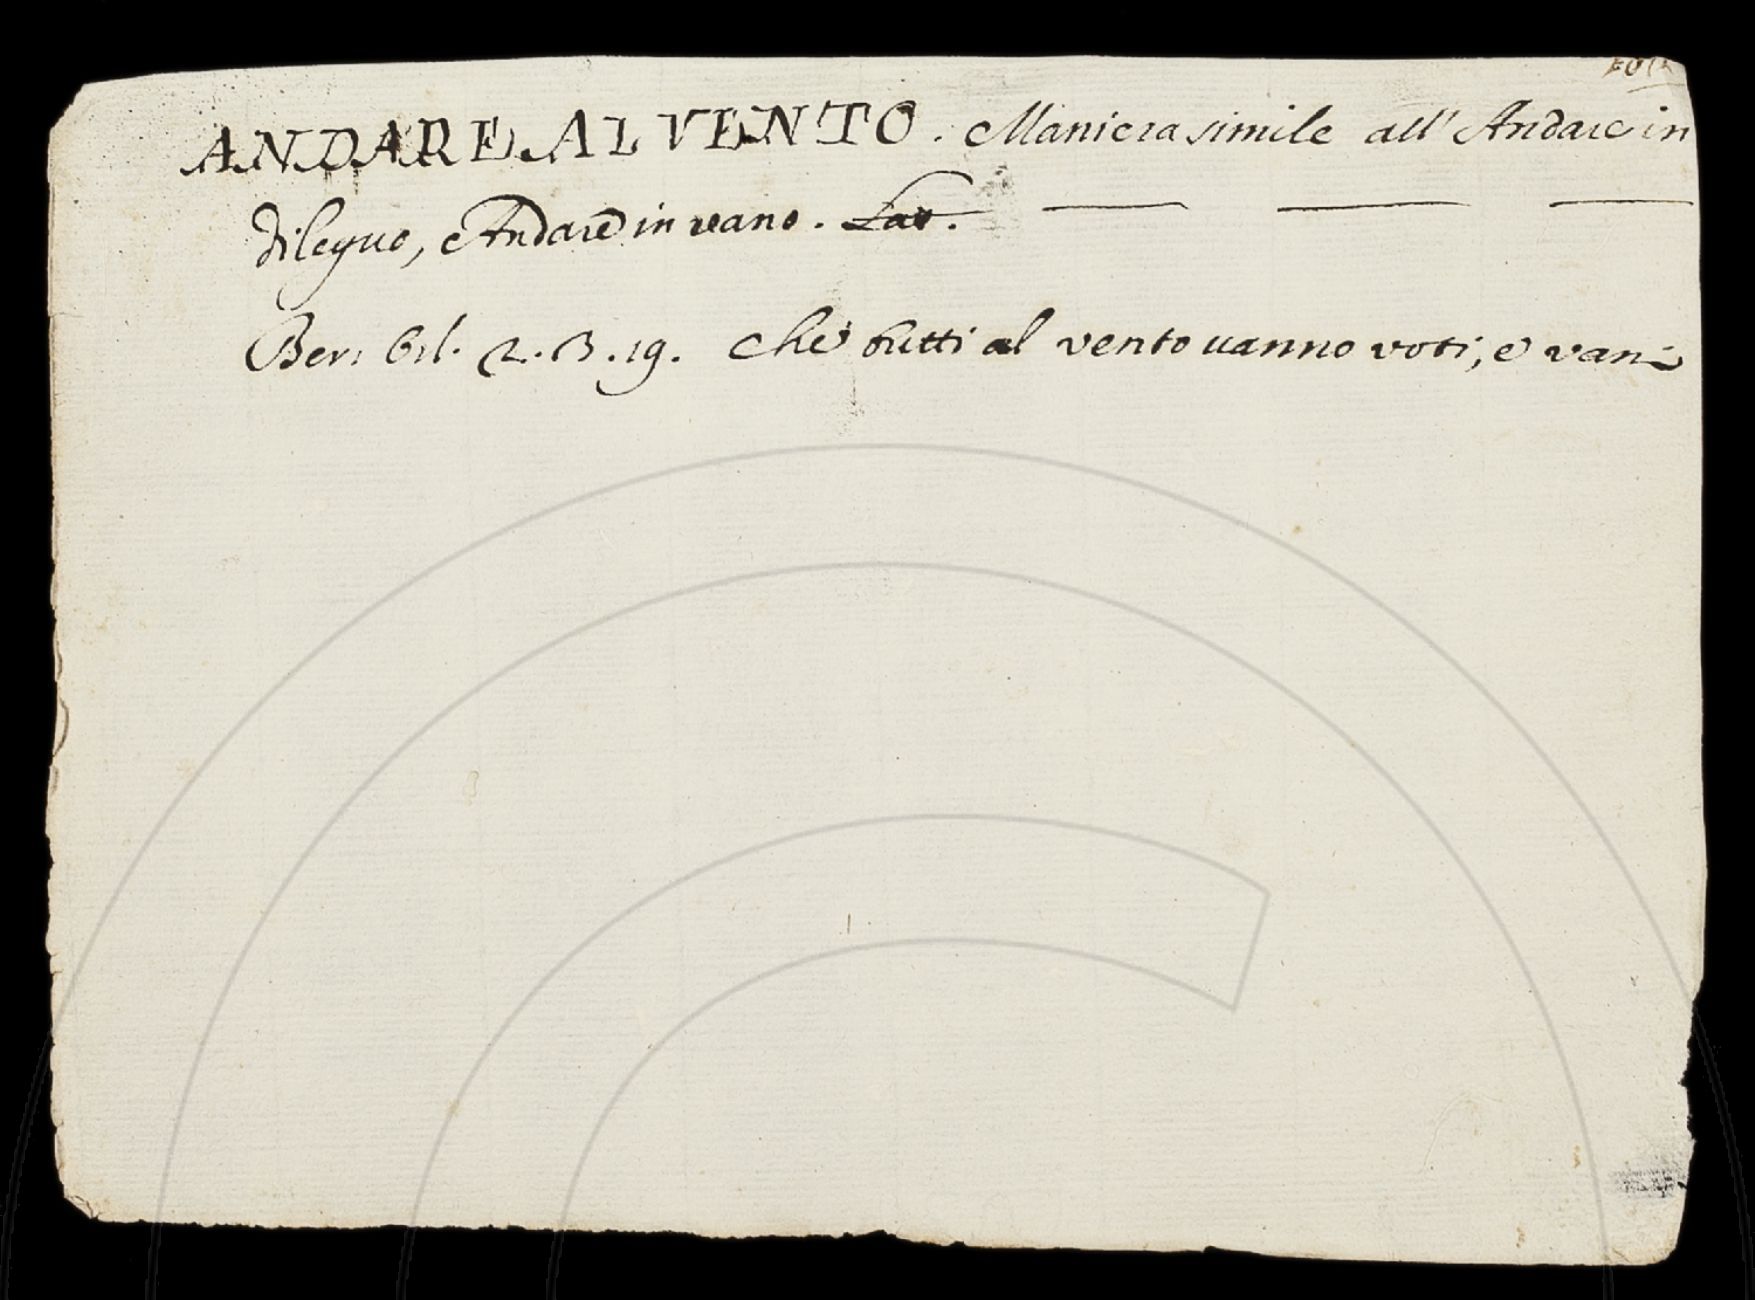 ANDARE AL VENTO. Maniera simile all' Andare in
dileguo, Andare in vano. Lat.
Ber. Orl. 2. 13. 19. Che tutti al vento vanno voti, e vani